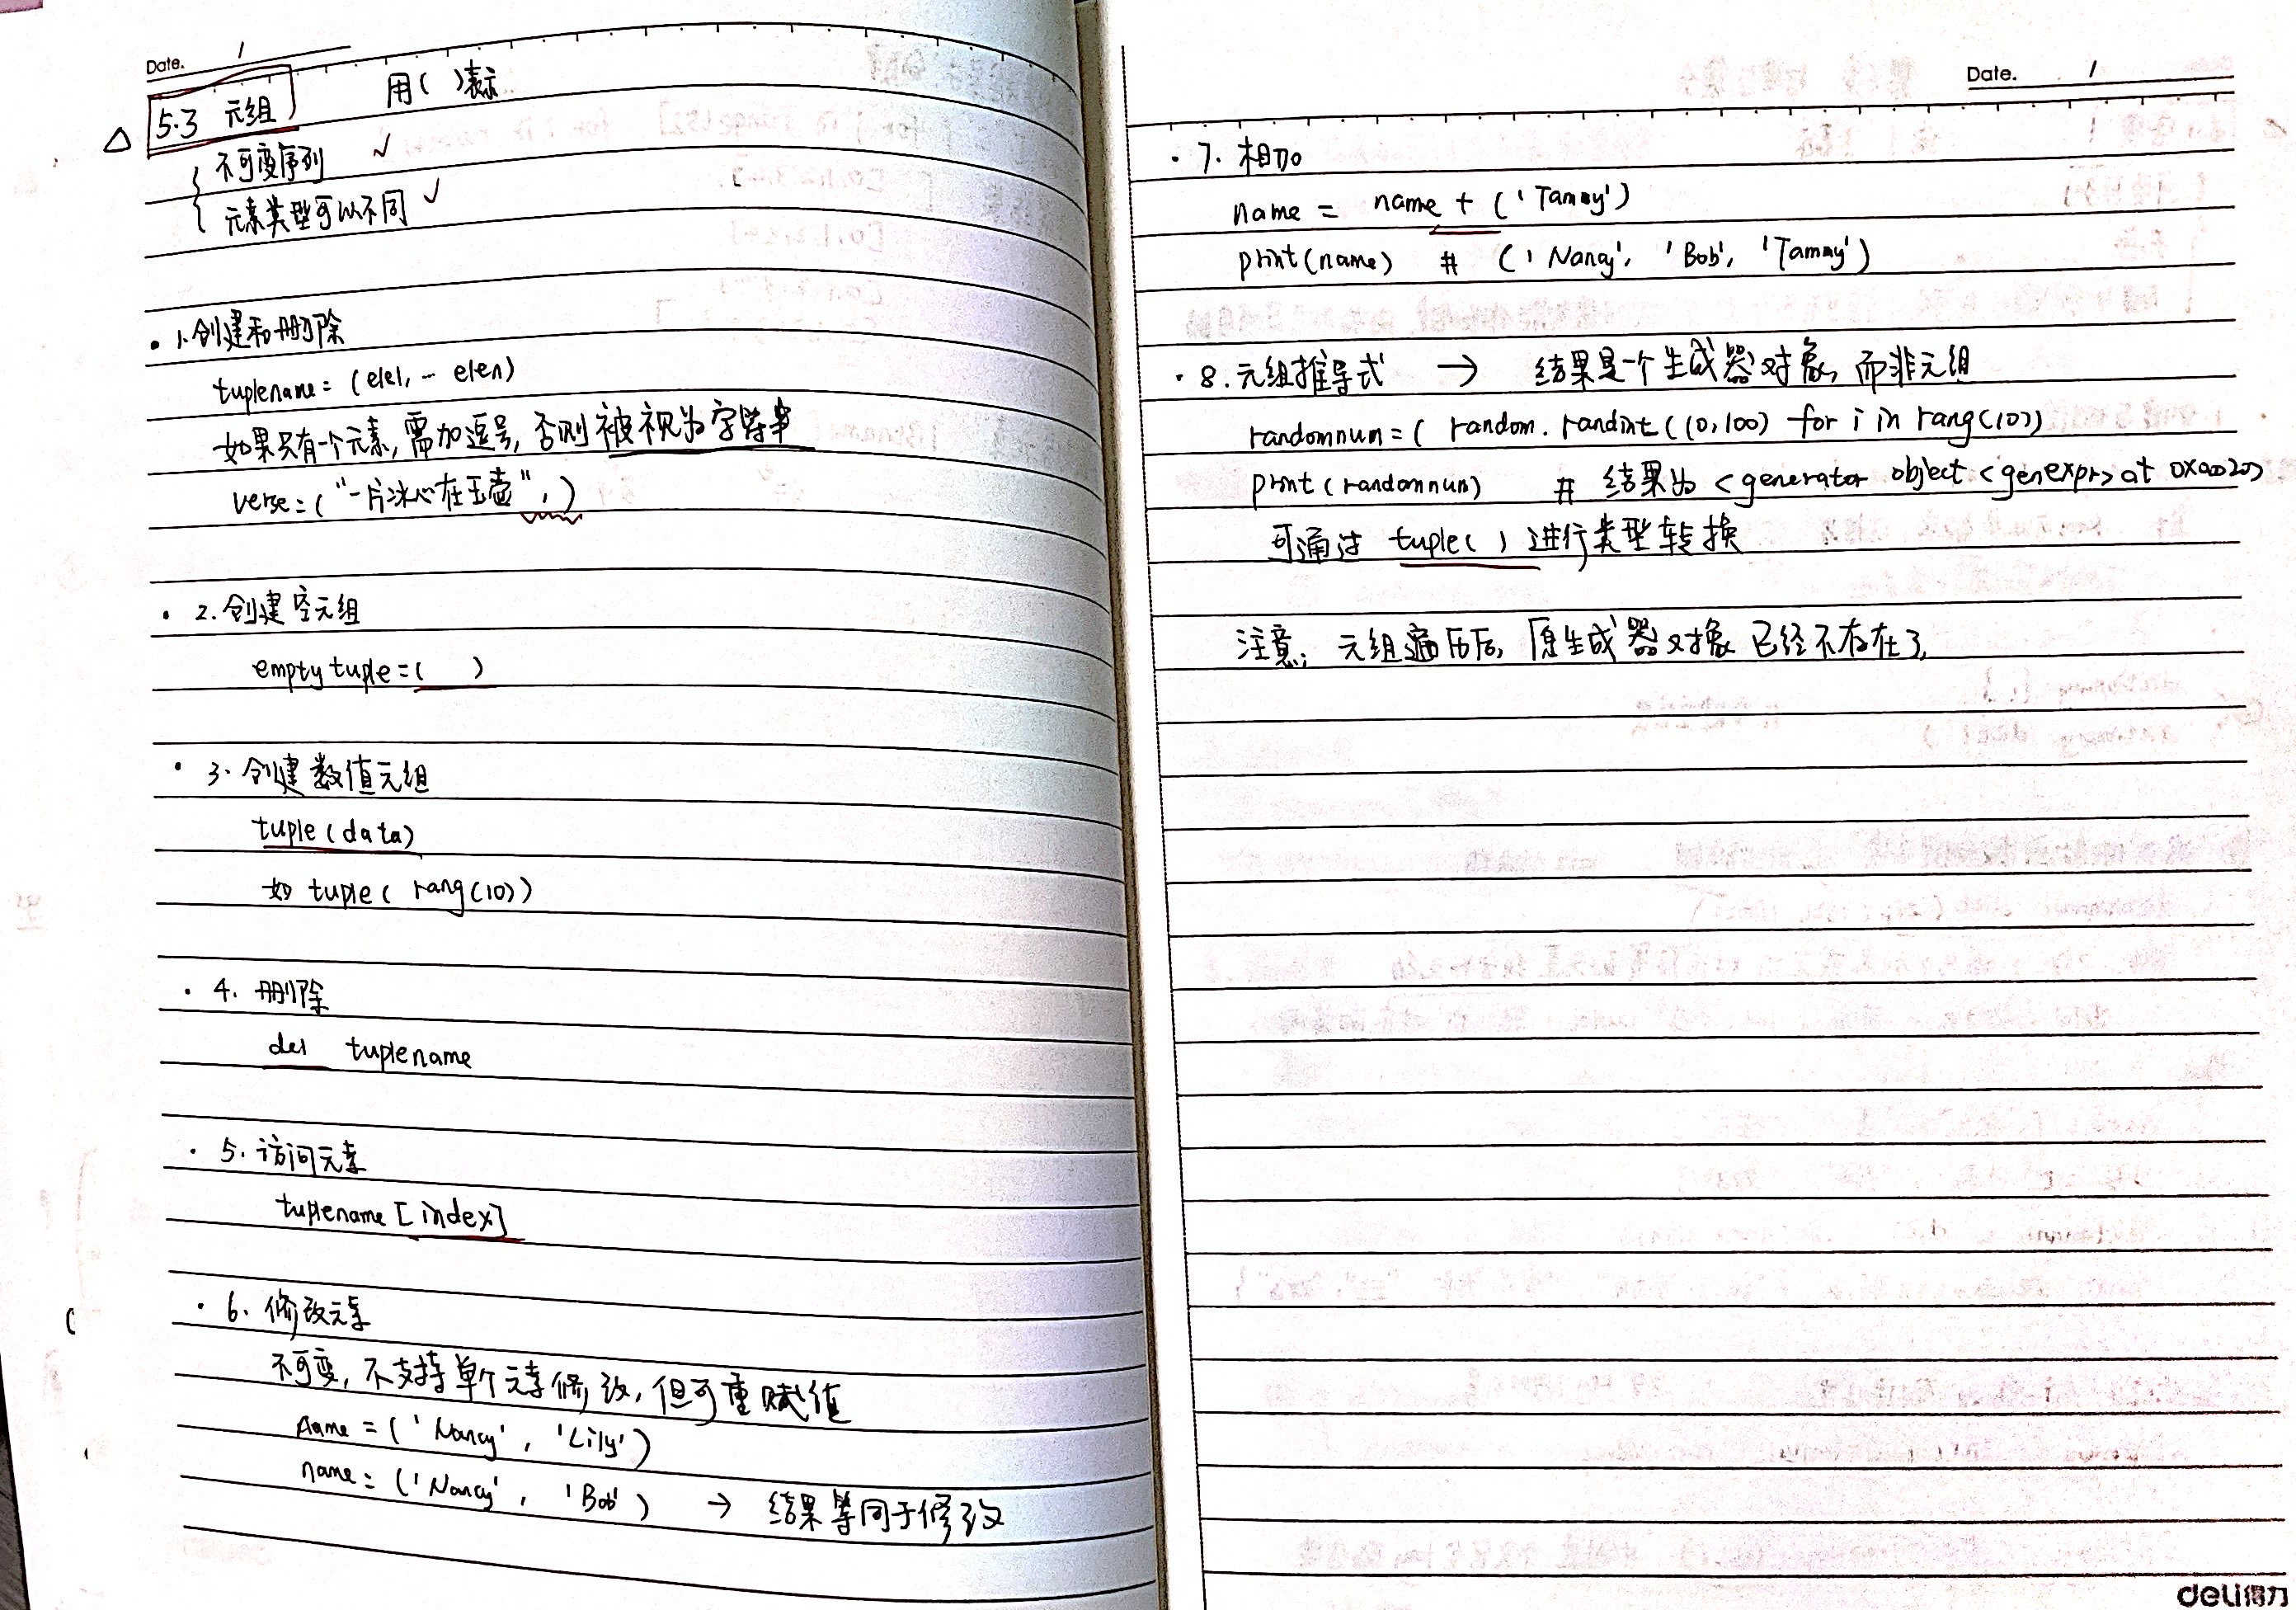 Date. /
5.3 元组 用( )表示
不可变序列 ✓
元素类型可以不同 ✓
· 1.创建和删除
tuplename = (ele1, … elen)
如果只有一个元素, 需加逗号, 否则被视为字符串
verse = ("一片冰心在玉壶", )
· 2.创建空元组
empty tuple = ( )
· 3. 创建数值元组
tuple (data)
如 tuple ( rang(10))
· 4. 删除
del tuplename
· 5. 访问元素
tuplename [index]
· 6. 修改元素
不可变, 不支持单个元素修改, 但可重赋值
name = ('Nancy', 'Lily')
name = ('Nancy', 'Bob') → 结果等同于修改
Date. /
· 7. 相加
name = name + ('Tammy')
print(name) # ('Nancy', 'Bob', 'Tammy')
· 8. 元组推导式 → 结果是一个生成器对象, 而非元组
randomnum = ( random. randint ((0,100) for i in rang(10))
print (randomnum) # 结果为 <generator object <genexpr> at 0x0020>
可通过 tuple( ) 进行类型转换
注意: 元组遍历后, 原生成器对象已经不存在了,
deli得力